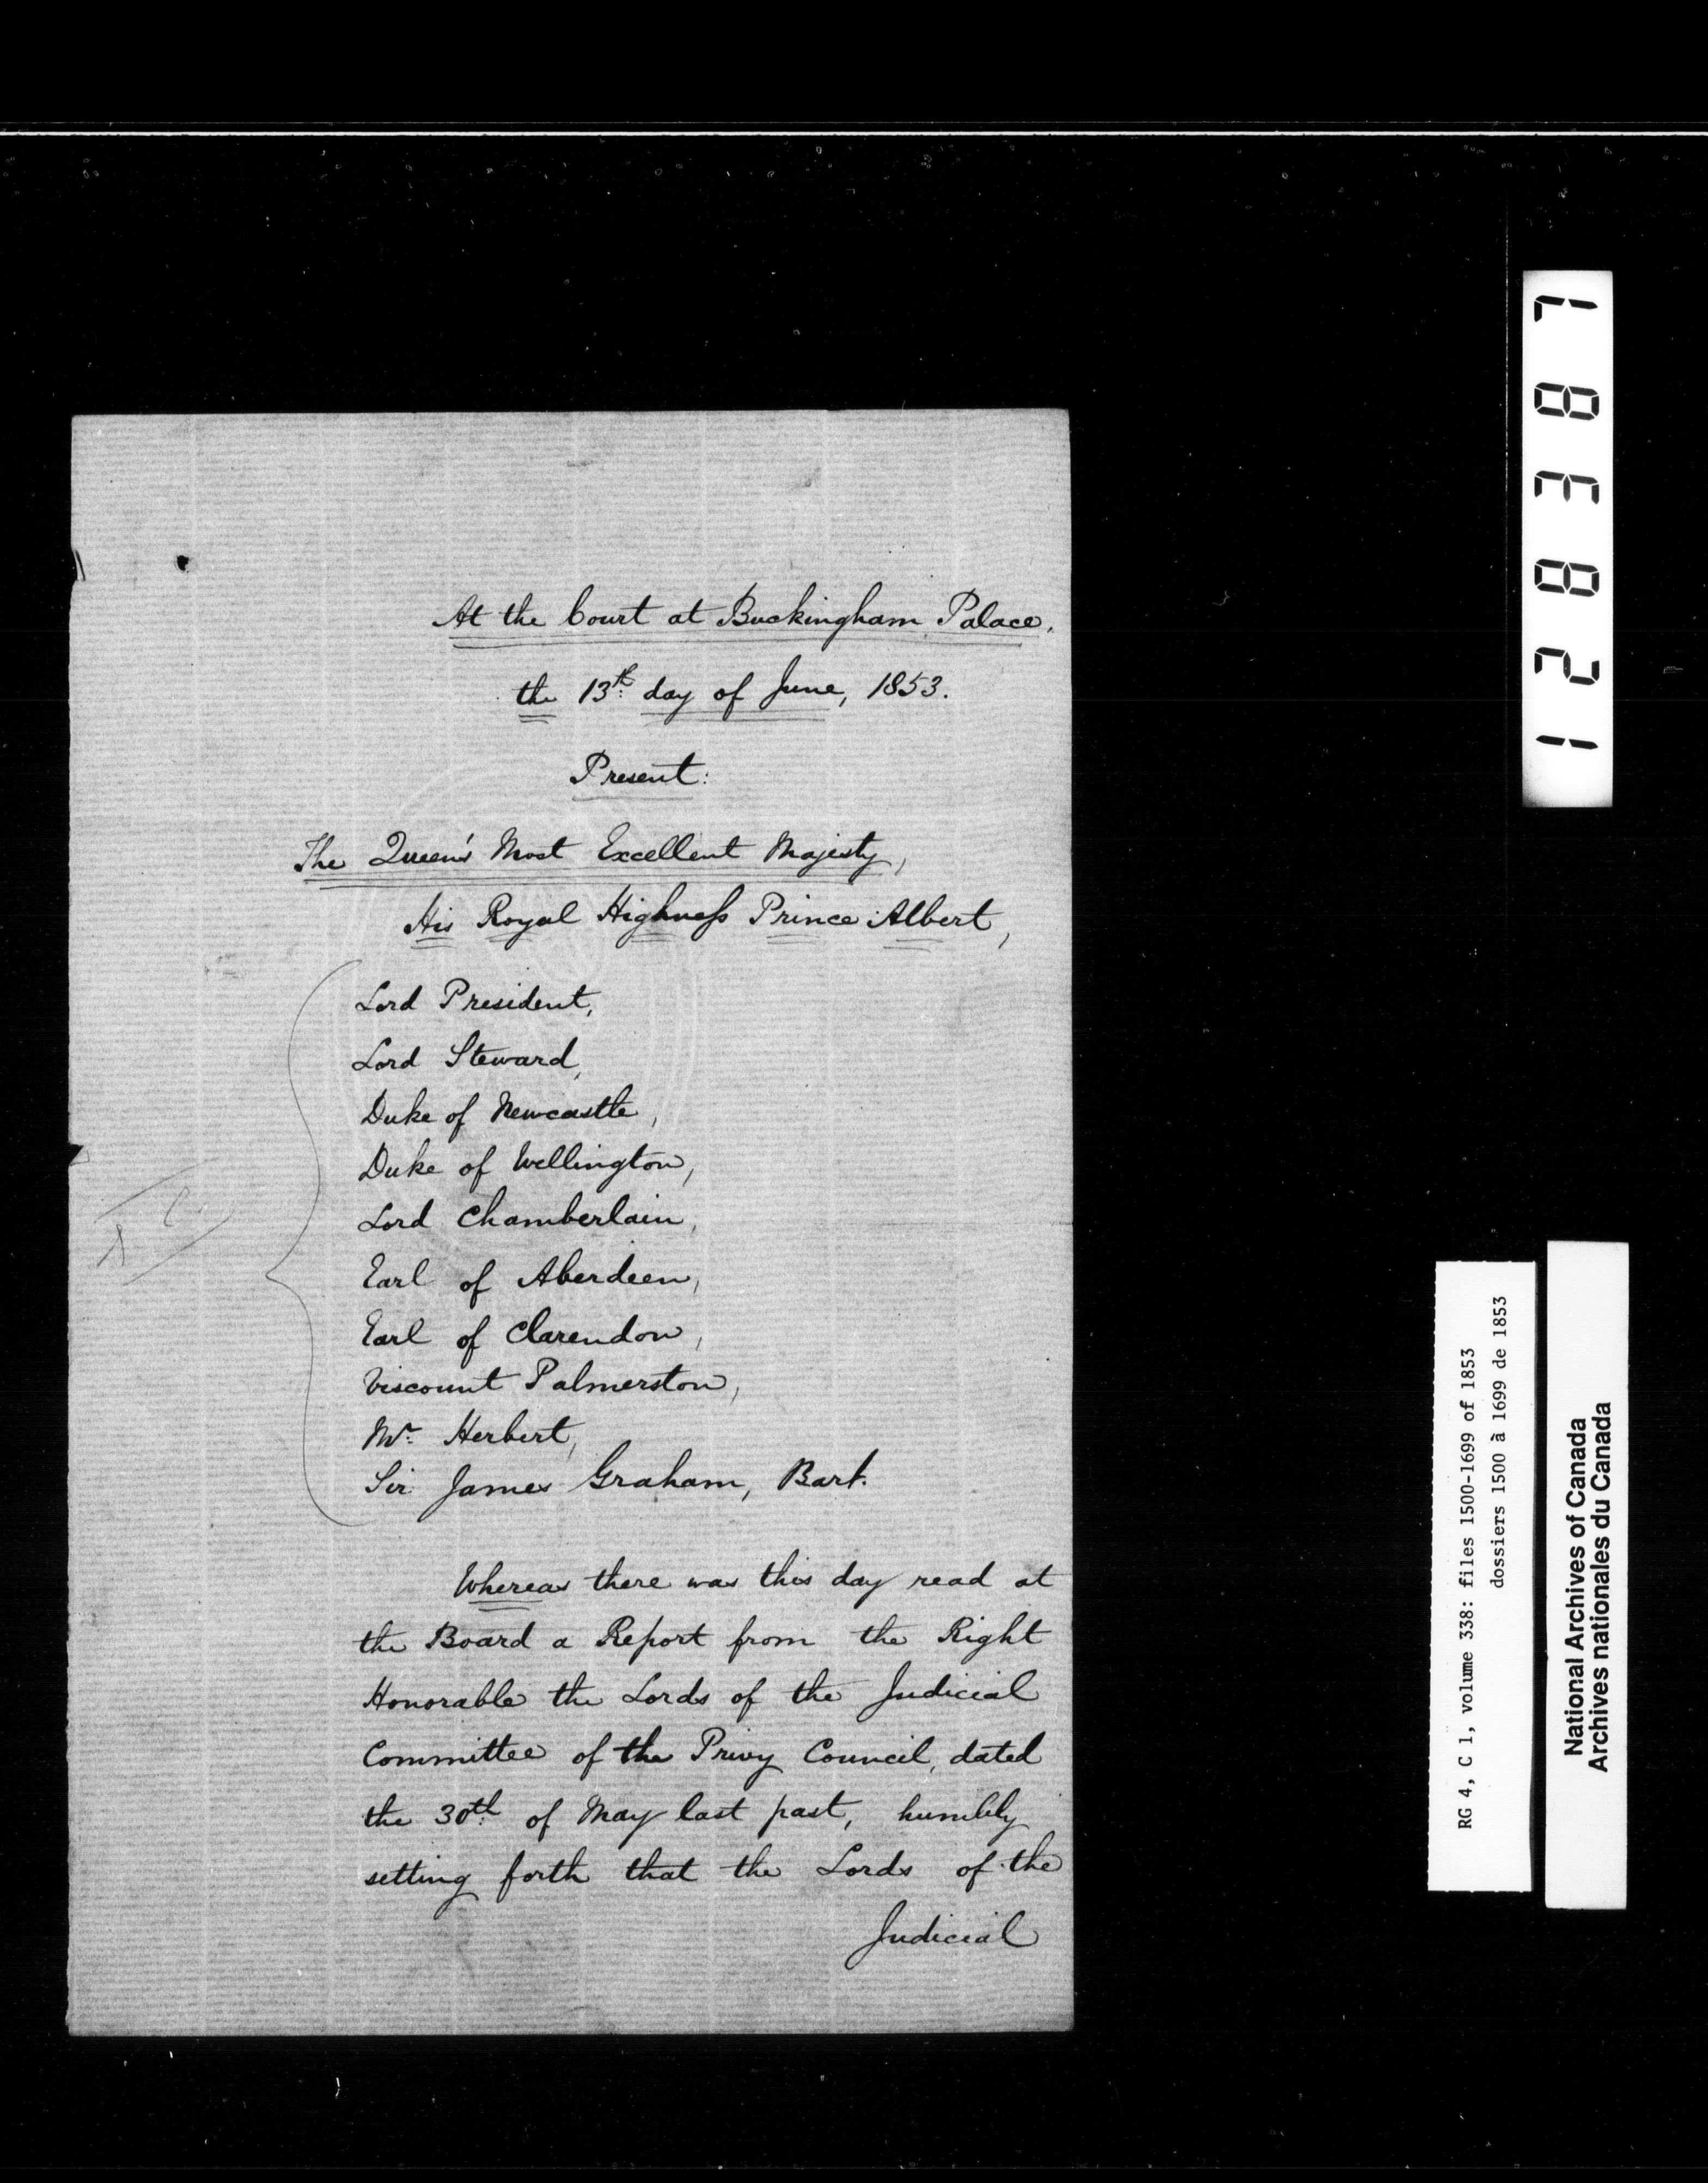 At the Court at Buckingham Palace,
the 13th day of June, 1853.
Present:
The Queen's Most Excellent Majesty,
His Royal Highness Prince Albert,
Lord President,
Lord Steward,
Duke of Newcastle,
Duke of Wellington,
Lord Chamberlain,
Earl of Aberdeen,
Earl of Clarendon,
Viscount Palmerston,
Mr. Herbert,
Sir James Graham, Bart.
Whereas there was this day read at
the Board a Report from the Right
Honorable the Lords of the Judicial
Committee of the Privy Council, dated
the 30th of May last past, humbly
setting forth that the Lords of the
Judicial
128387
RG 4, C 1, volume 338: files 1500-1699 of 1853
dossiers 1500 à 1699 de 1853
National Archives of Canada
Archives nationales du Canada